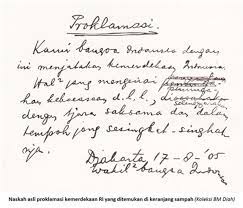 Proklamasi.
Kami bangsa Indonesia dengan
ini menjatakan kemerdekaan Indonesia.
Hal² jang mengenai
kekoeasaan d.l.l., diselenggarakan
dengan tjara saksama dan dalam
tempoh jang sesingkat-singkat
nja.
Djakarta 17-8-'05
Wakil² bangsa Indon
Naskah asli proklamasi kemerdekaan RI yang ditemukan di keranjang sampah (Koleksi BM Diah)